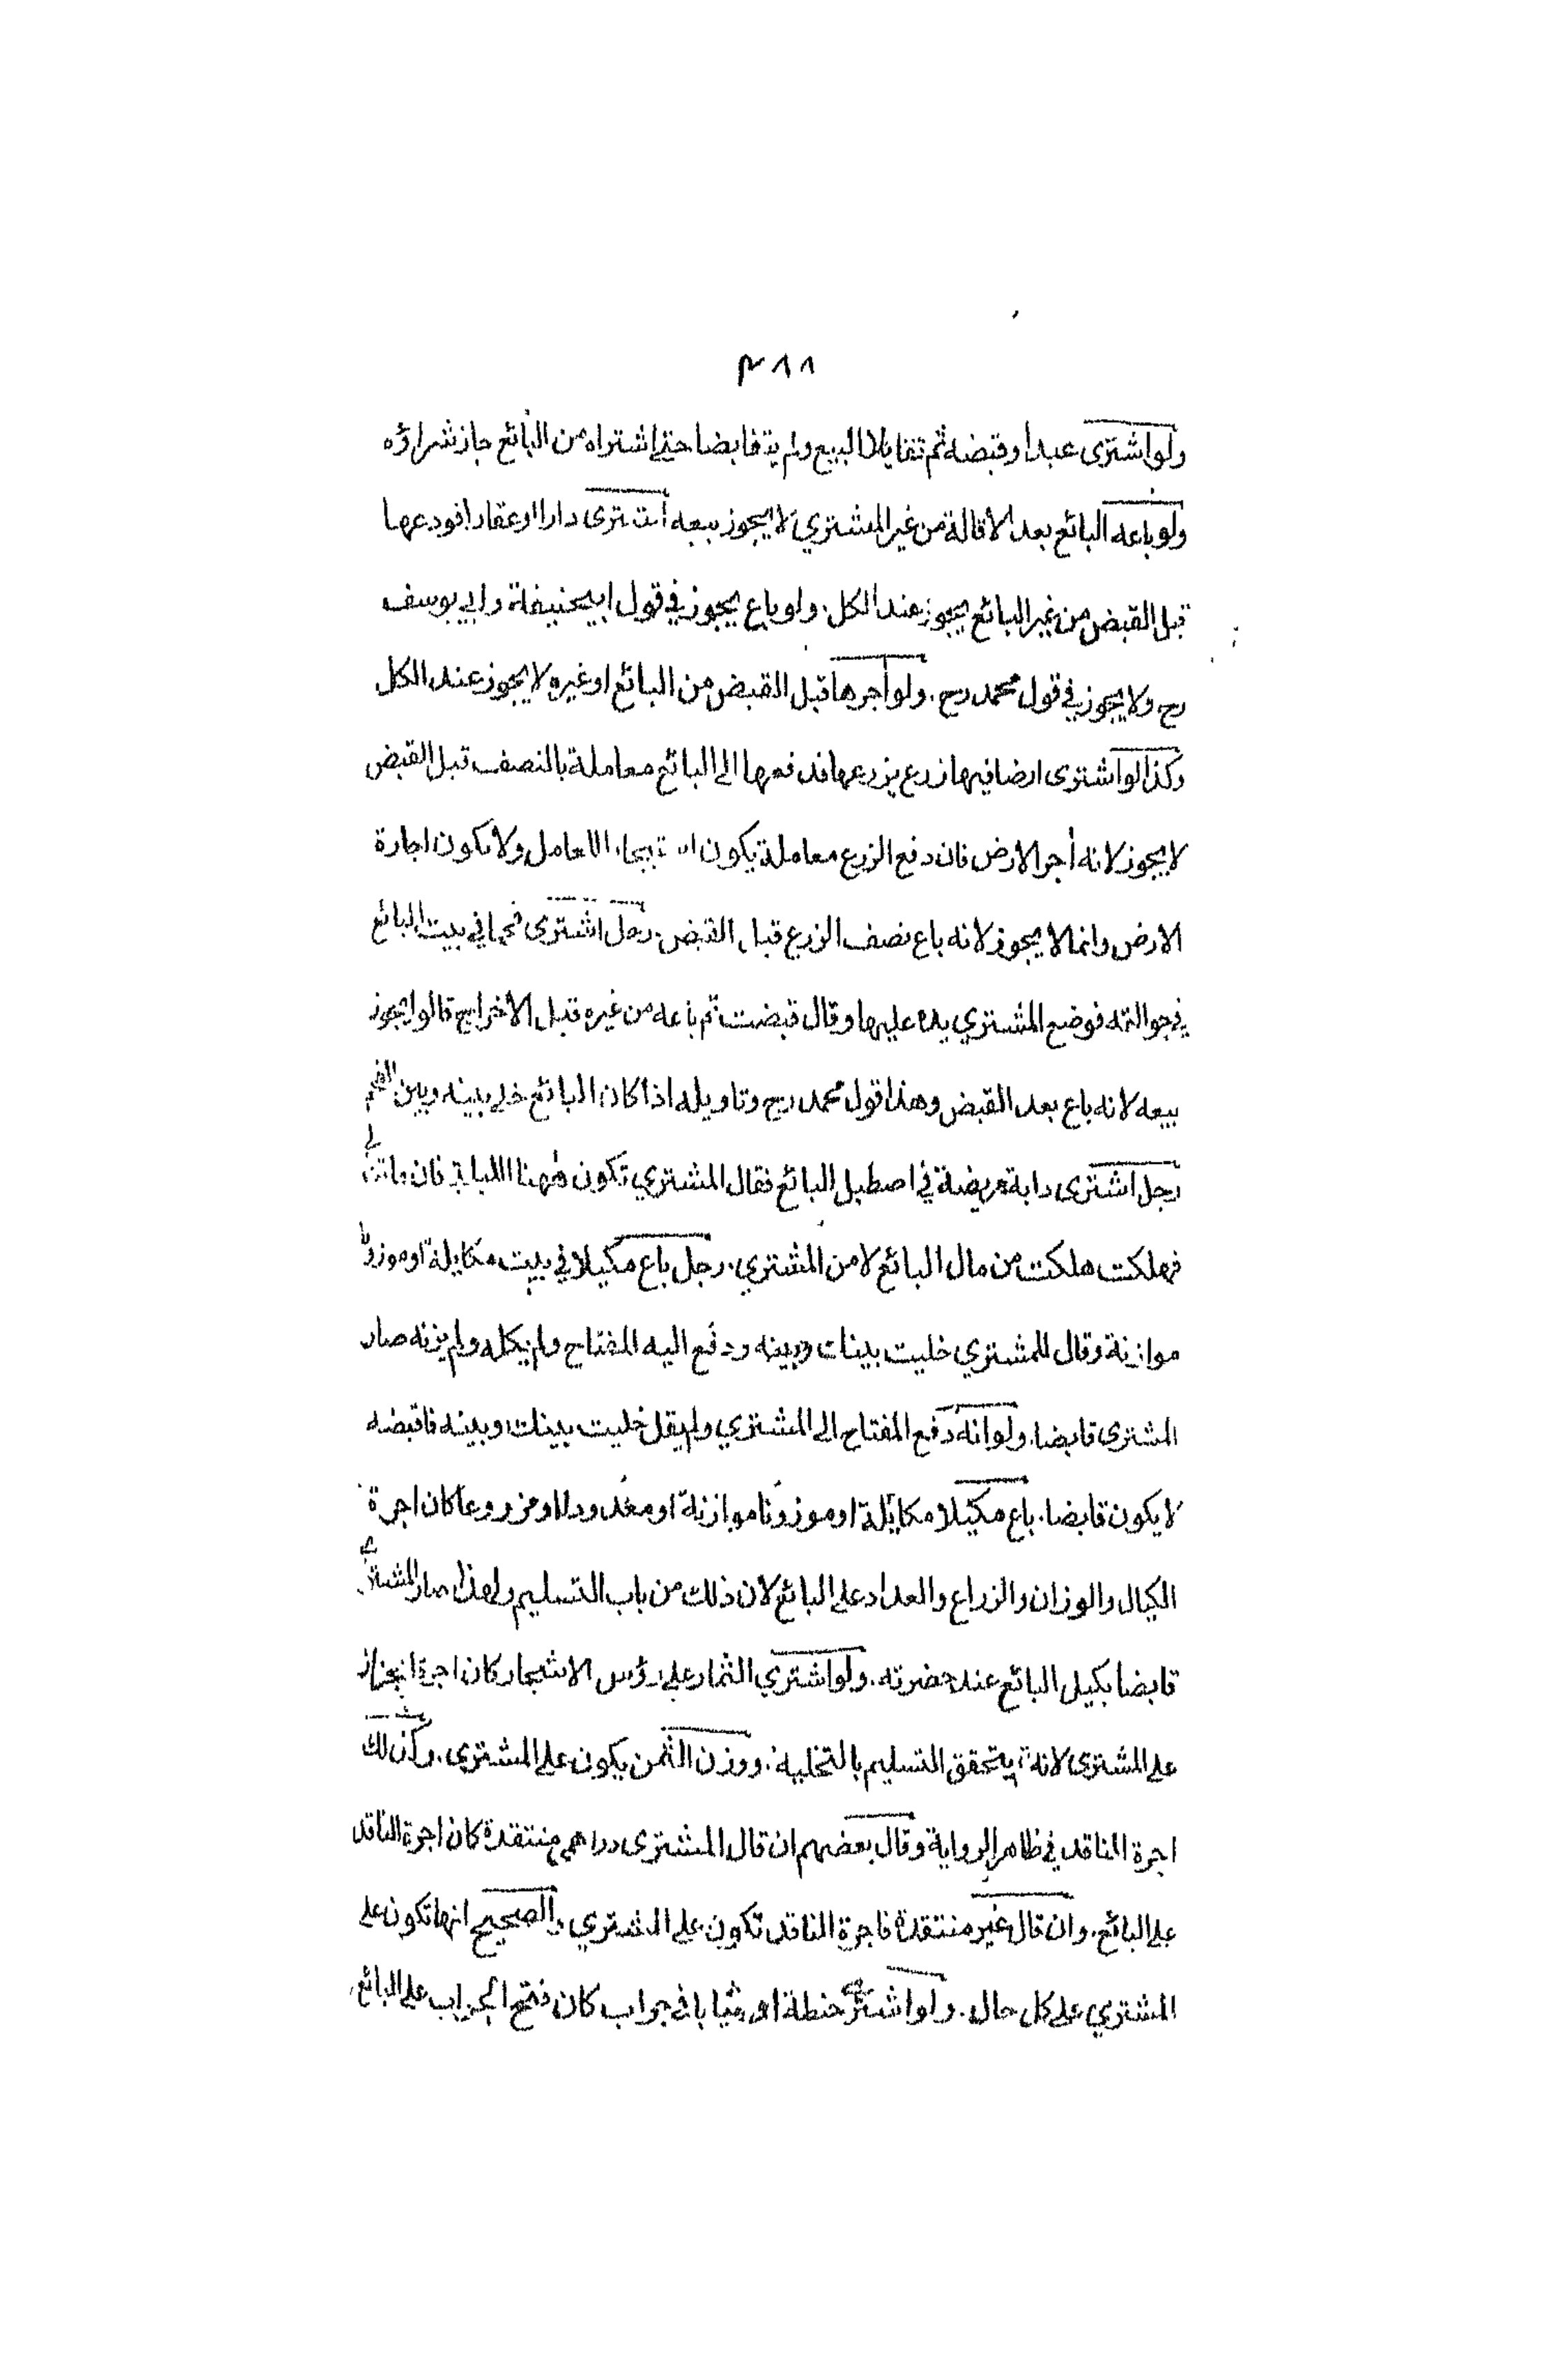 ٢٨٨
ولو اشترى عبدا وقبضه ثم تقايلا البيع ولم يتقابضا حتى اشتراه من البائع جاز شراؤه
ولو باعه البائع بعد الاقالة من غير المشتري لا يجوز بيعه اشترى دارا او عقارا فودعها
قبل القبض من غير البائع يجوز عند الكل. ولو باع يجوز في قول ابيحنيفة وابي يوسف
رح ولا يجوز في قول محمد رح. ولو آجرها قبل القبض من البائع او غيره لا يجوز عند الكل
وكذا لو اشترى ارضا فيها زرع يزرعها فدفعها الى البائع معاملة بالنصف قبل القبض
لا يجوز لانه آجر الارض فان دفع الزرع معاملة يكون للعامل ولا تكون اجارة
الارض وانما لا يجوز لانه باع نصف الزرع قبل القبض. رجل اشترى فحما في بيت البائع
في جوالقه فوضع المشتري يده عليها وقال قبضت ثم باعه من غيره قبل الاخراج قالوا يجوز
بيعه لانه باع بعد القبض وهذا قول محمد رح وتاويله اذا كان البائع خلى بينه وبين الفحم
رجل اشترى دابة مريضة في اصطبل البائع فقال المشتري تكون ههنا الليلة فان ماتت لي
فهلكت هلكت من مال البائع لا من المشتري. رجل باع مكيلا في بيت مكايلة او موزونا
موازنة وقال للمشتري خليت بينك وبينه ودفع اليه المفتاح ولم يكله ولم يزنه صار
المشترى قابضا. ولو انه دفع المفتاح الى المشتري ولم يقل خليت بينك وبينه فاقبضه
لا يكون قابضا. باع مكيلا مكايلة او موزونا موازنة او معدودا او مزروعا كان اجرة
الكيال والوزان والزراع والعداد على البائع لان ذلك من باب التسليم ولهذا صار المشتري
قابضا بكيل البائع عند حضرته. ولو اشتري الثمار على رؤس الاشجار كان اجرة الجزاز
على المشترى لانه يتحقق التسليم بالتخلية. ووزن الثمن يكون على المشترى. وكذلك
اجرة الناقد في ظاهر الرواية وقال بعضهم ان قال المشترى دراهمي منتقدة كان اجرة الناقد
على البائع. وان قال غير منتقدة فاجرة الناقد تكون على المشتري والصحيح انها تكون على
المشتري على كل حال. ولو اشترى حنطة او ثيابا في جراب كان فتح الجراب على البائع